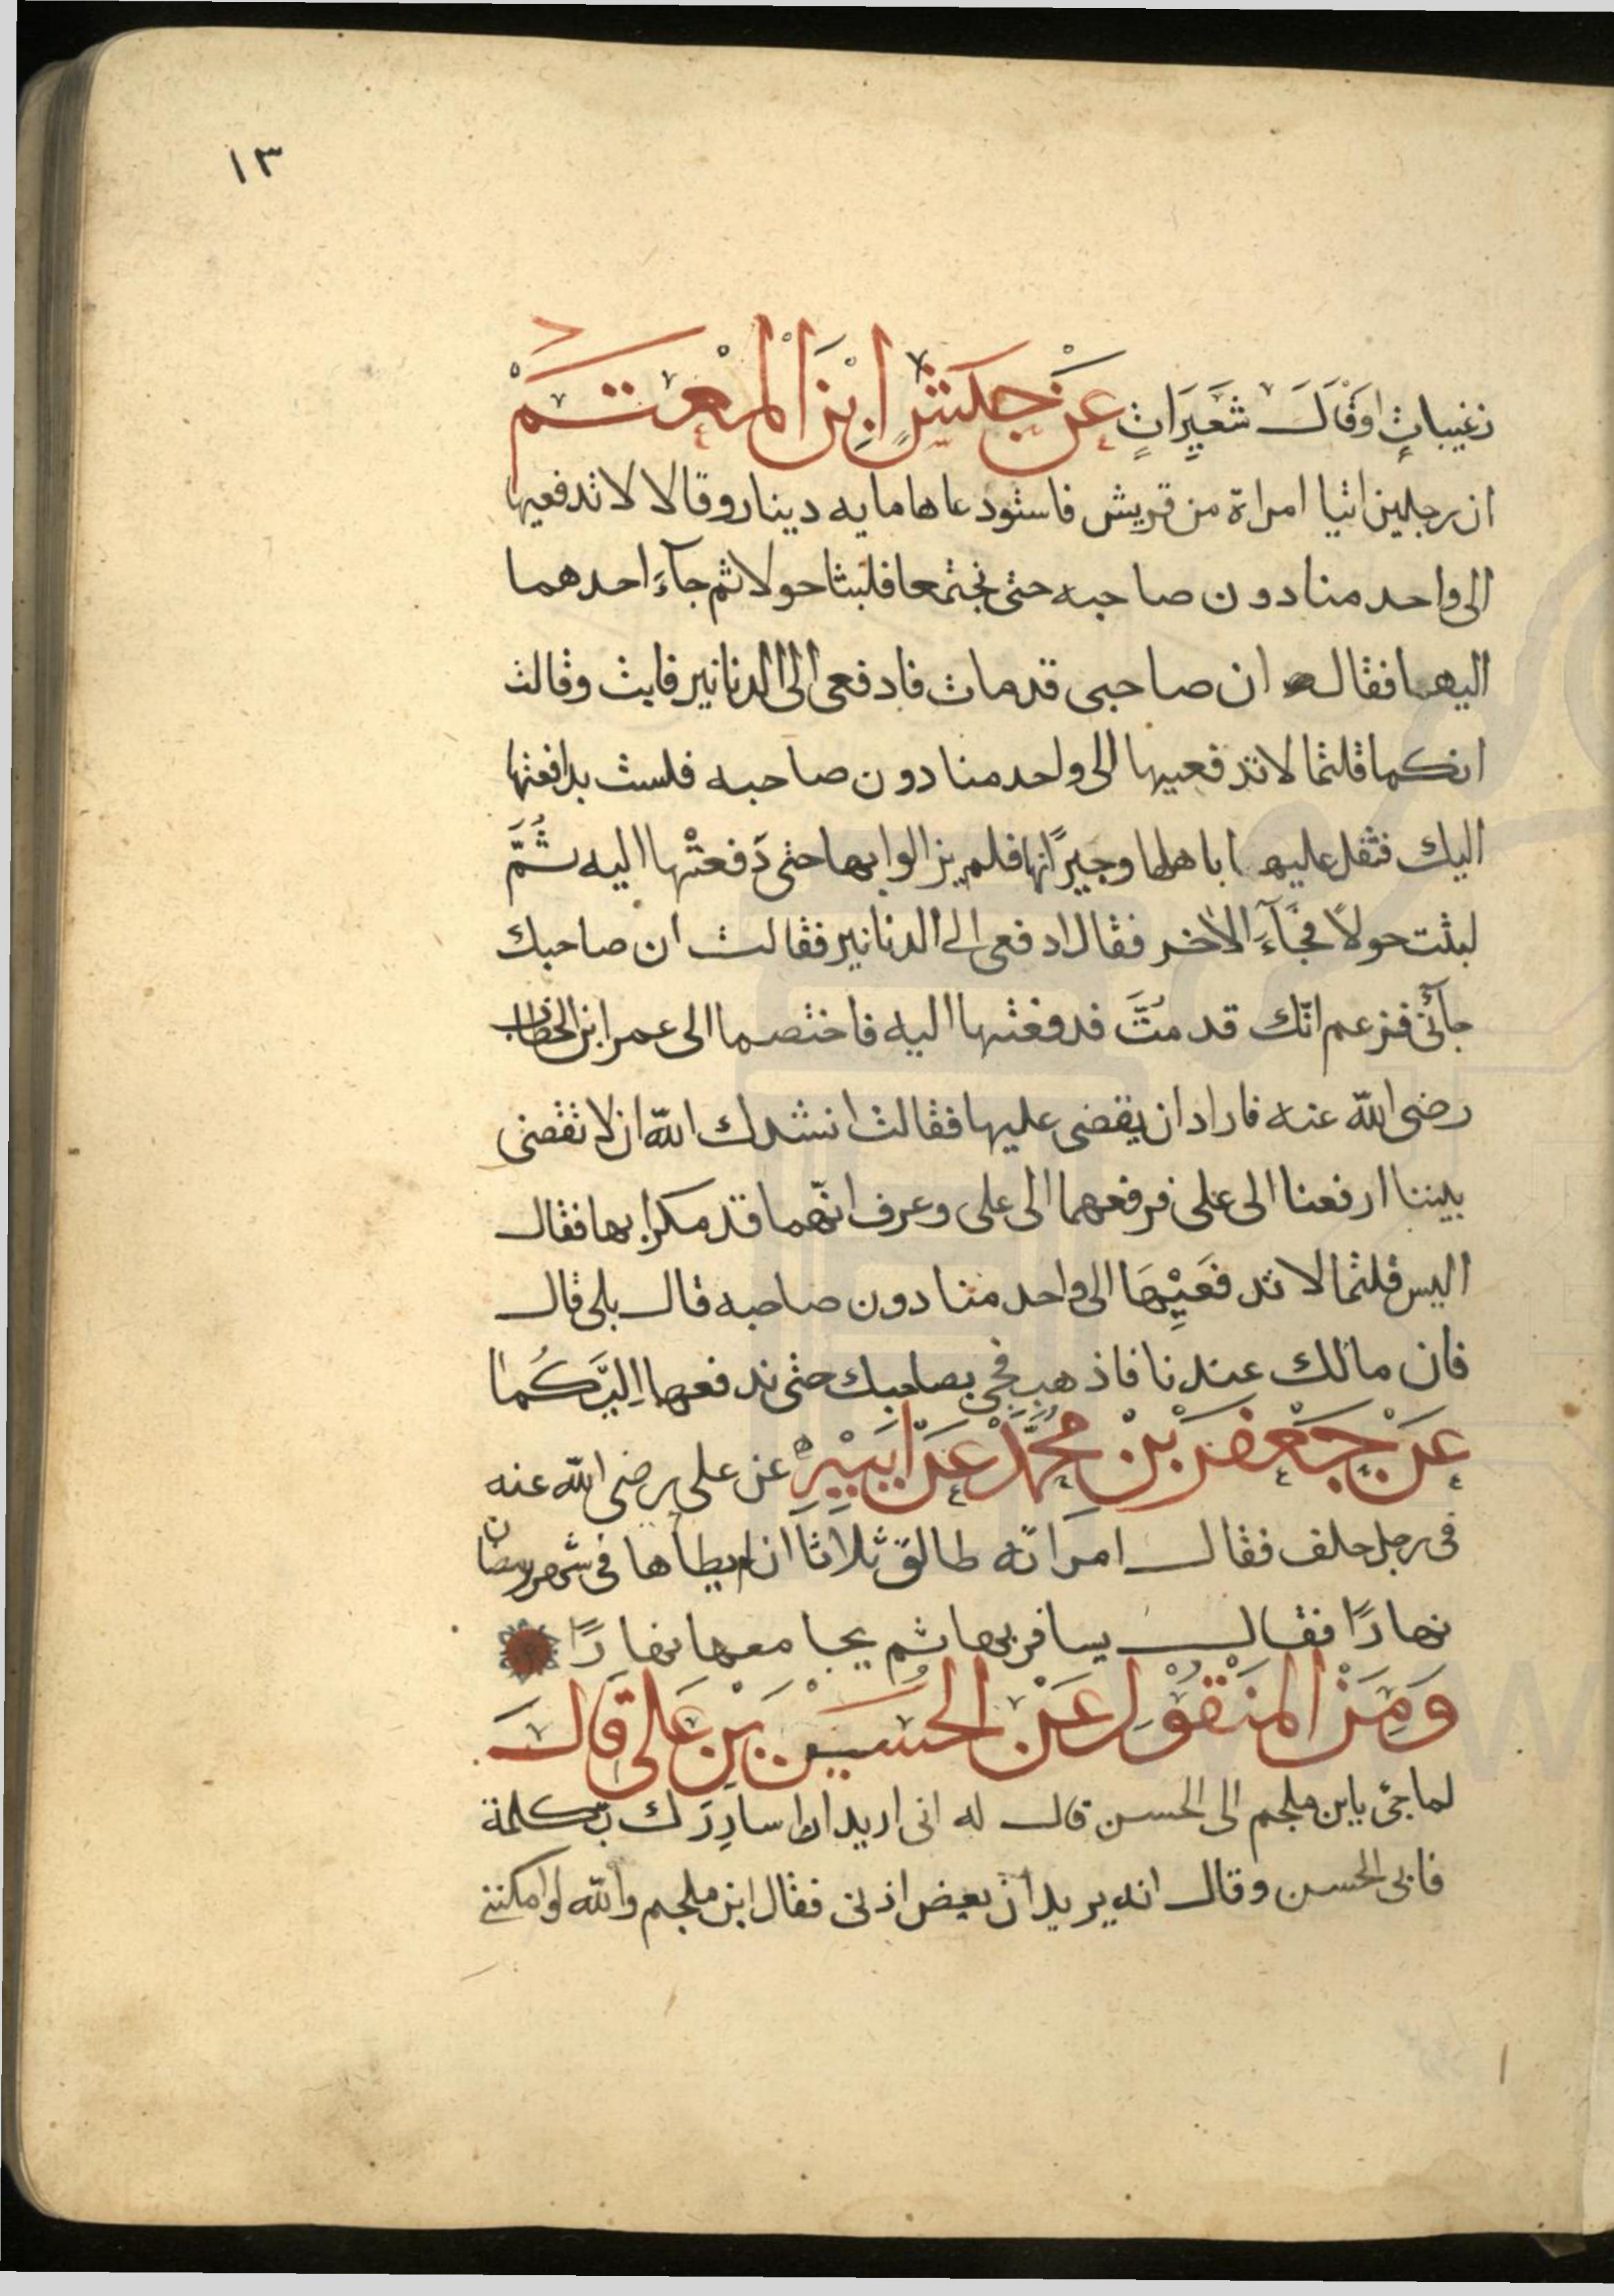 ١٣
زغيبات اوقال شعيرات عن حنش ابن المعتمر
ان رجلين اتيا امراة من قريش فاستودعاها ماية دينار وقالا لا تدفعيها
الى واحد منا دون صاحبه حتى نجتمعا فلبثا حولا ثم جآء احدهما
اليها فقال ان صاحبى قد مات فادفعى الى الدنانير فابت وقالت
انكما قلتما لا تدفعيها الى واحد منا دون صاحبه فلست بدافعتها
اليك فثقل عليها باهلها وجيرانها فلم يزالوا بها حتى دَفعتْها اليه ثُمَّ
لبثت حولاً فجَآءَ الآخر فقال ادفعى الى الدنانير فقالت ان صاحبك
جآئنى فزعم انّك قد مُتَّ فدفعتها اليه فاختصما الى عمر ابن الخطاب
رضى الله عنه فاراد ان يقضى عليها فقالت انشدك الله ان لا تقضى
بيننا ارفعنا الى على فرفعهما الى على وعرف انّهما قد مكرا بها فقال
اليس قلتما لا تدفَعَيْهَا الى واحد منا دون صاحبه قال بلى قال
فان مالك عندنا فاذهب فجئ بصاحبك حتى ندفعها اليَكُما
عَنْ جَعْفَر بْنْ مُحَمَّدْ عَنْ اَبَيْهِ عن على رضى الله عنه
فى رجل حلف فقال امراته طالق ثلاثا ان لم يطأها فى شهر رمضان
نهارًا فقال يسافر بها ثم يجامعها نهارًا
وَمِنْ المَنْقُوْلِ عَنْ الحُسَيْن بْنِ عَلى قَالَ
لما جئ بابن ملجم الى الحسن قال له انى اريد ان اسارِرَك بكلمة
فابى الحسن وقال انه يريد ان يعض اذنى فقال ابن ملجم والله لو امكننى